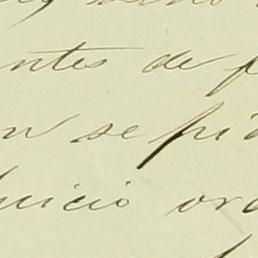 ntes de p
n se pid
juicio ord